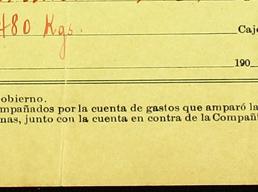 480 Kgs.
Caj
190
obierno.
mpañados por la cuenta de gastos que amparó la
nas, junto con la cuenta en contra de la Compañ